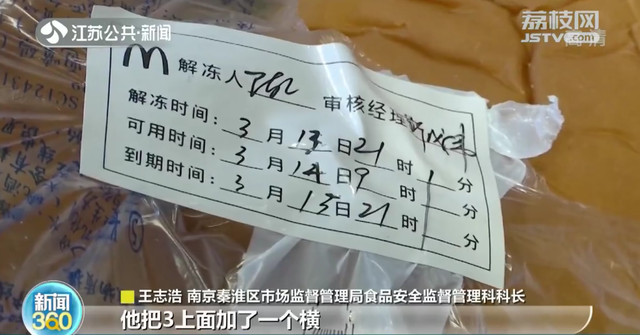 江苏公共·新闻
荔枝网
JSTV.com
高清
解冻人 审核经理
解冻时间：3月13日21时1分
可用时间：3月14日9时 分
到期时间：3月15日21时 分
SC12431
新闻360
王志浩 南京秦淮区市场监督管理局食品安全监督管理科科长
他把3上面加了一个横